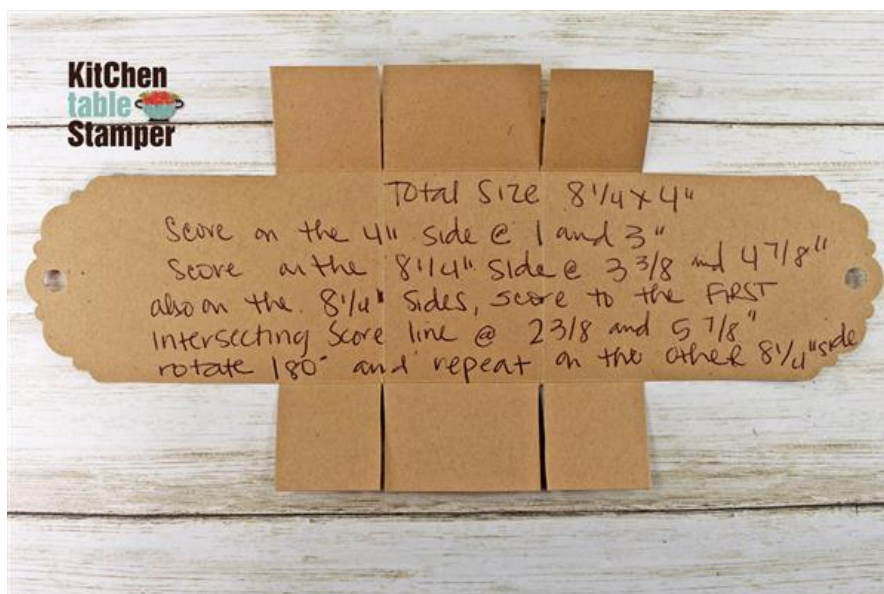 KitChen
table
Stamper
Total Size 8 1/4 x 4"
Score on the 4" side @ 1 and 3"
Score on the 8 1/4" side @ 3 3/8 and 4 7/8"
also on the 8 1/4" sides, score to the FIRST
Intersecting Score line @ 2 3/8 and 5 7/8"
rotate 180° and repeat on the other 8 1/4" side